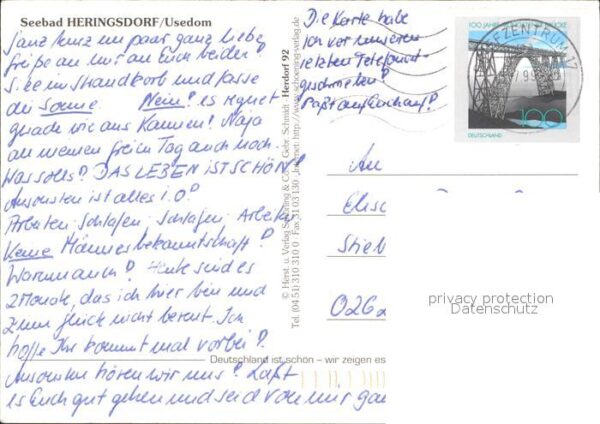 Seebad HERINGSDORF/Usedom
Ganz kurz ein paar ganz liebe
Grüße an nur an Euch beide!
Sitze im Strandkorb und lasse
die Sonne Nein! es regnet
gerade wie aus Kannen! Naja
an meinen freien Tag auch noch.
Was solls? DAS LEBEN IST SCHÖN!
Ansonsten ist alles i.O.!
Arbeiten schlafen schlafen Arbeiten
Keine Männerbekanntschaft?
Warum auch? Heute sind es
2 Monate, das ich hier bin und
zum Glück nicht bereut. Ich
hoffe Ihr kommt mal vorbei?
Ansonsten hören wir uns? Laßt
es Euch gut gehen und seid von mir
Die Karte habe
ich vor unserem
letzten Telefonat
geschrieben!
Paßt auf Euch auf!
© Herst. u. Verlag Schöning & Co + Gebr. Schmidt · Herdorf 92
Tel. (04 51) 310 310 0 · Fax 31 03 130 · Internet: http://www.schoening-verlag.de
100 JAHRE
DEUTSCHLAND
100
FZENTRUM 17
An
Stieb
026
privacy protection
Datenschutz
Deutschland ist schön – wir zeigen es